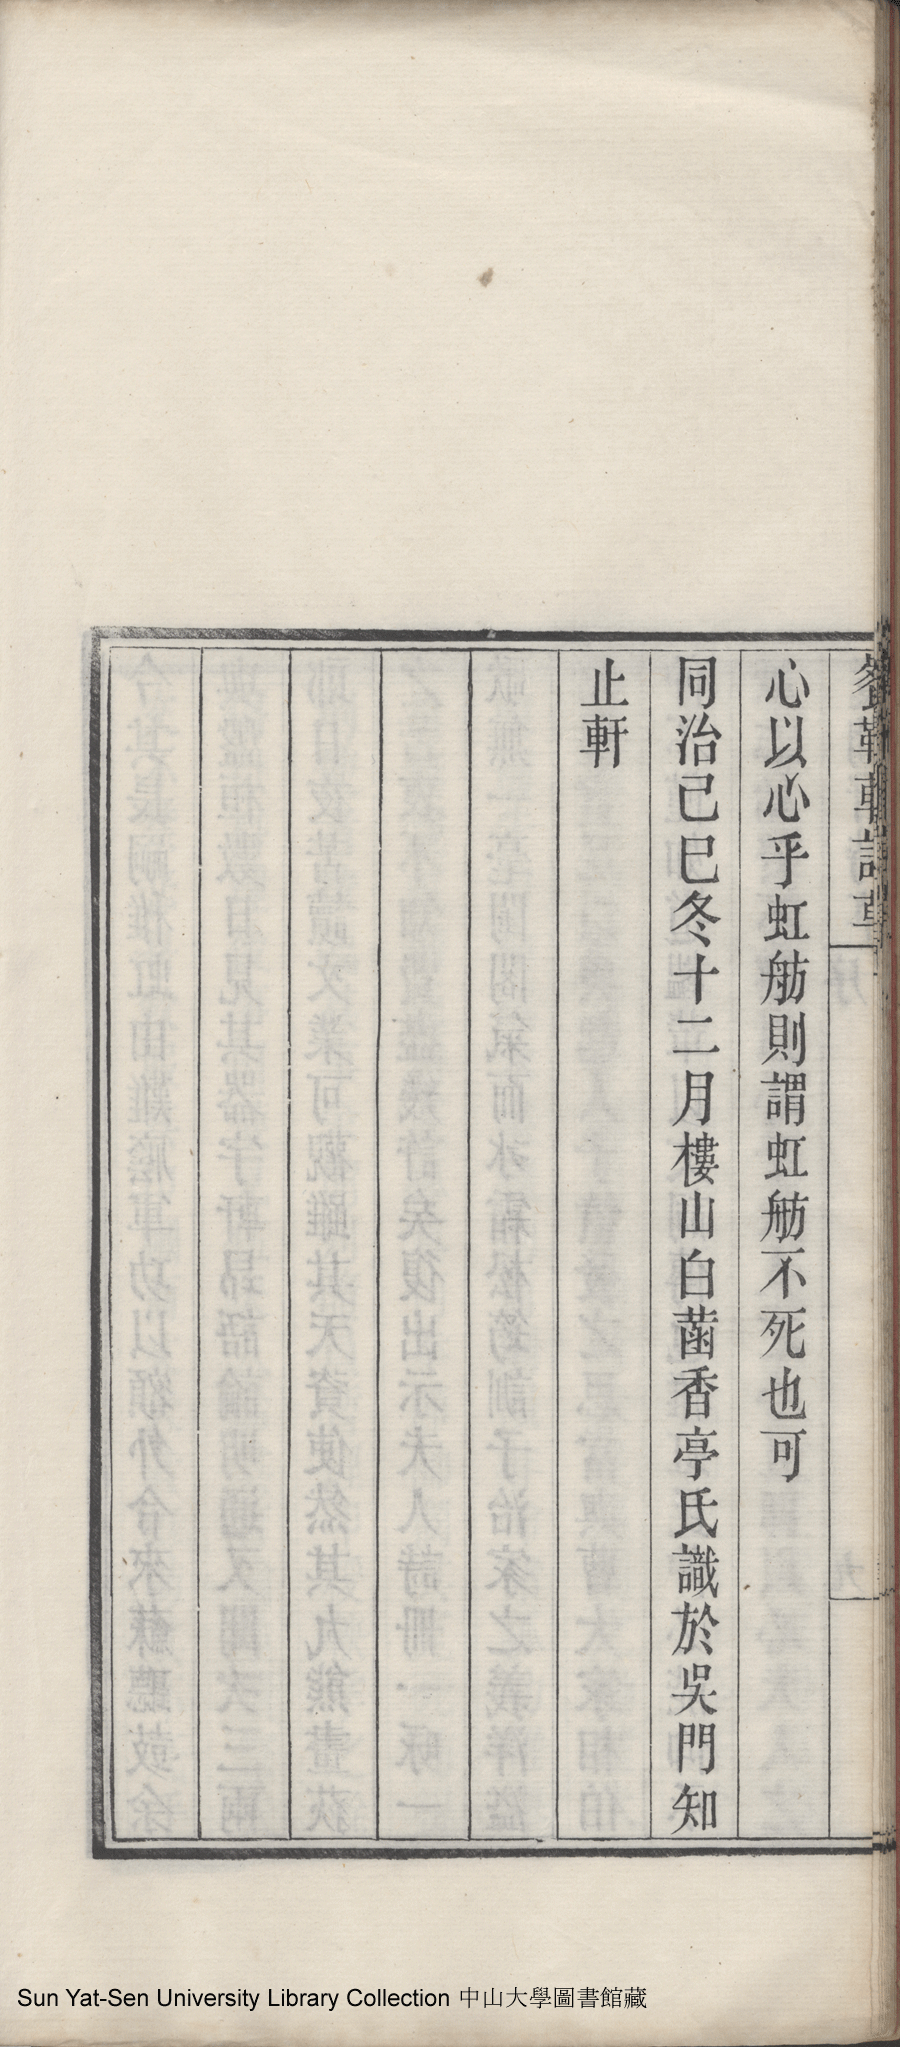 心以心乎虹舫則謂虹舫不死也可
同治己巳冬十二月樓山白菡香亭氏識於吳門知
止軒
序
九
Sun Yat-Sen University Library Collection 中山大學圖書館藏